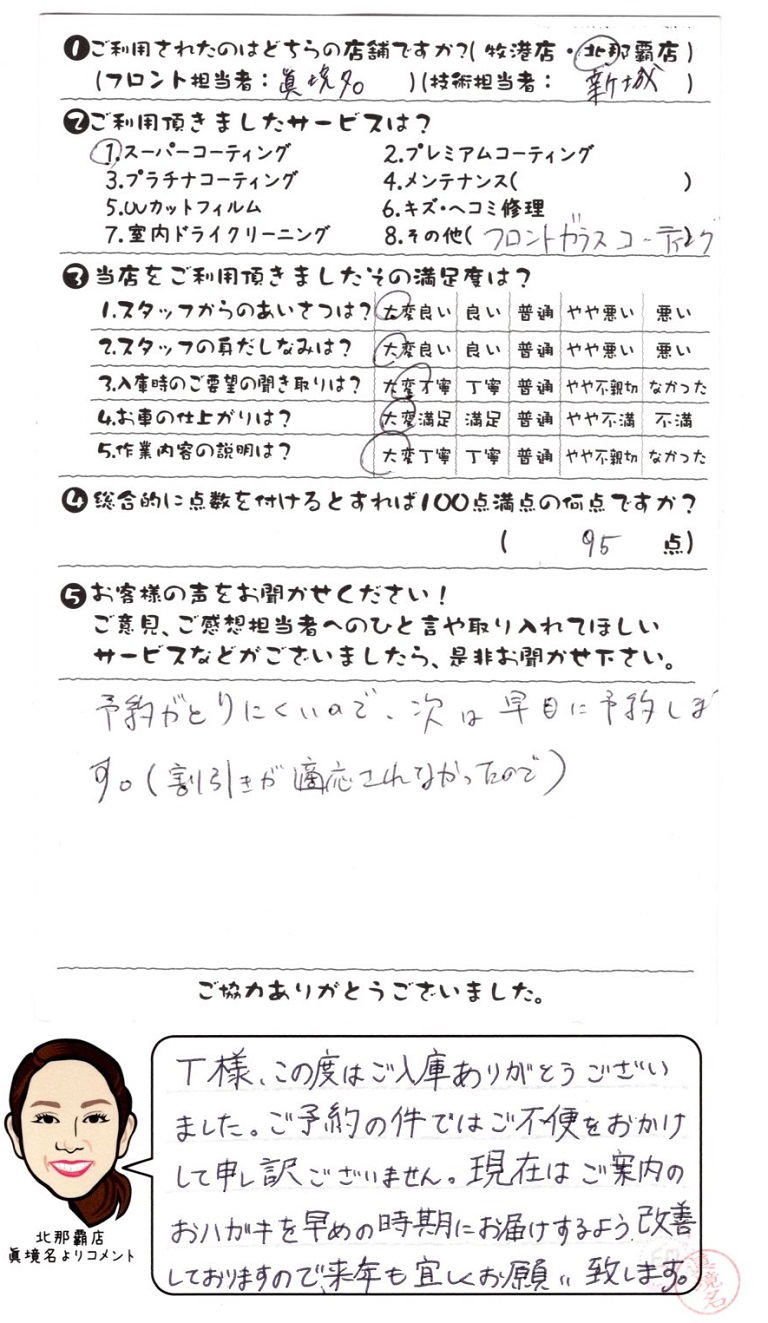 ❶ご利用されたのはどちらの店舗ですか?(牧港店・北那覇店)
(フロント担当者：眞境名 )(技術担当者： 新城 )
❷ご利用頂きましたサービスは?
1.スーパーコーティング 2.プレミアムコーティング
3.プラチナコーティング 4.メンテナンス( )
5.UVカットフィルム 6.キズ・ヘコミ修理
7.室内ドライクリーニング 8.その他( フロントガラスコーティング
❸当店をご利用頂きましたその満足度は?
1.スタッフからのあいさつは? 大変良い 良い 普通 やや悪い 悪い
2.スタッフの身だしなみは? 大変良い 良い 普通 やや悪い 悪い
3.入庫時のご要望の聞き取りは? 大変丁寧 丁寧 普通 やや不親切 なかった
4.お車の仕上がりは? 大変満足 満足 普通 やや不満 不満
5.作業内容の説明は? 大変丁寧 丁寧 普通 やや不親切 なかった
❹総合的に点数を付けるとすれば100点満点の何点ですか?
( 95 点)
❺お客様の声をお聞かせください!
ご意見、ご感想担当者へのひと言や取り入れてほしい
サービスなどがございましたら、是非お聞かせ下さい。
予約がとりにくいので、次は早目に予約しま
す。(割引きが適応されなかったので)
ご協力ありがとうございました。
T様、この度はご入庫ありがとうござい
ました。ご予約の件ではご不便をおかけ
して申し訳ございません。現在はご案内の
おハガキを早めの時期にお届けするよう改善
しておりますので、来年も宜しくお願い致します。
北那覇店
眞境名よりコメント
眞境名